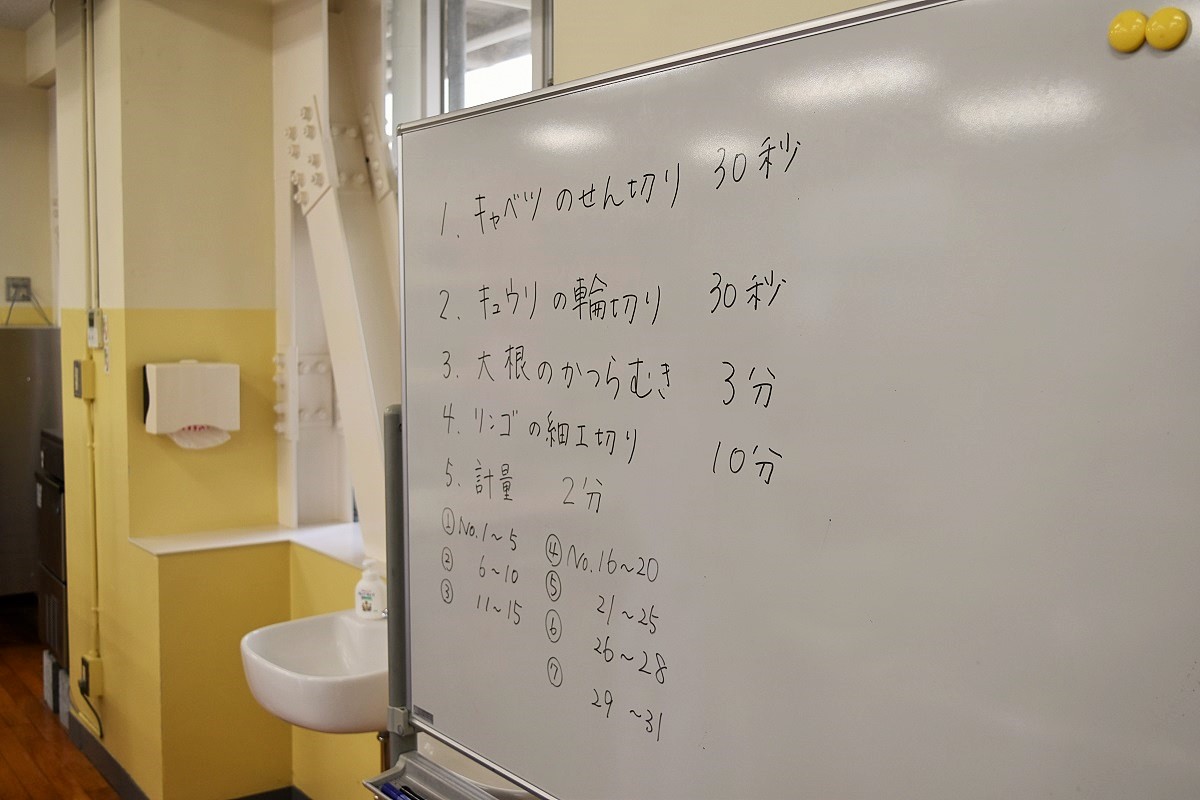 1. キャベツのせん切り 30秒
2. キュウリの輪切り 30秒
3. 大根のかつらむき 3分
4. リンゴの細工切り 10分
5. 計量 2分
① No.1~5
② 6~10
③ 11~15
④ No.16~20
⑤ 21~25
⑥ 26~28
⑦ 29~31